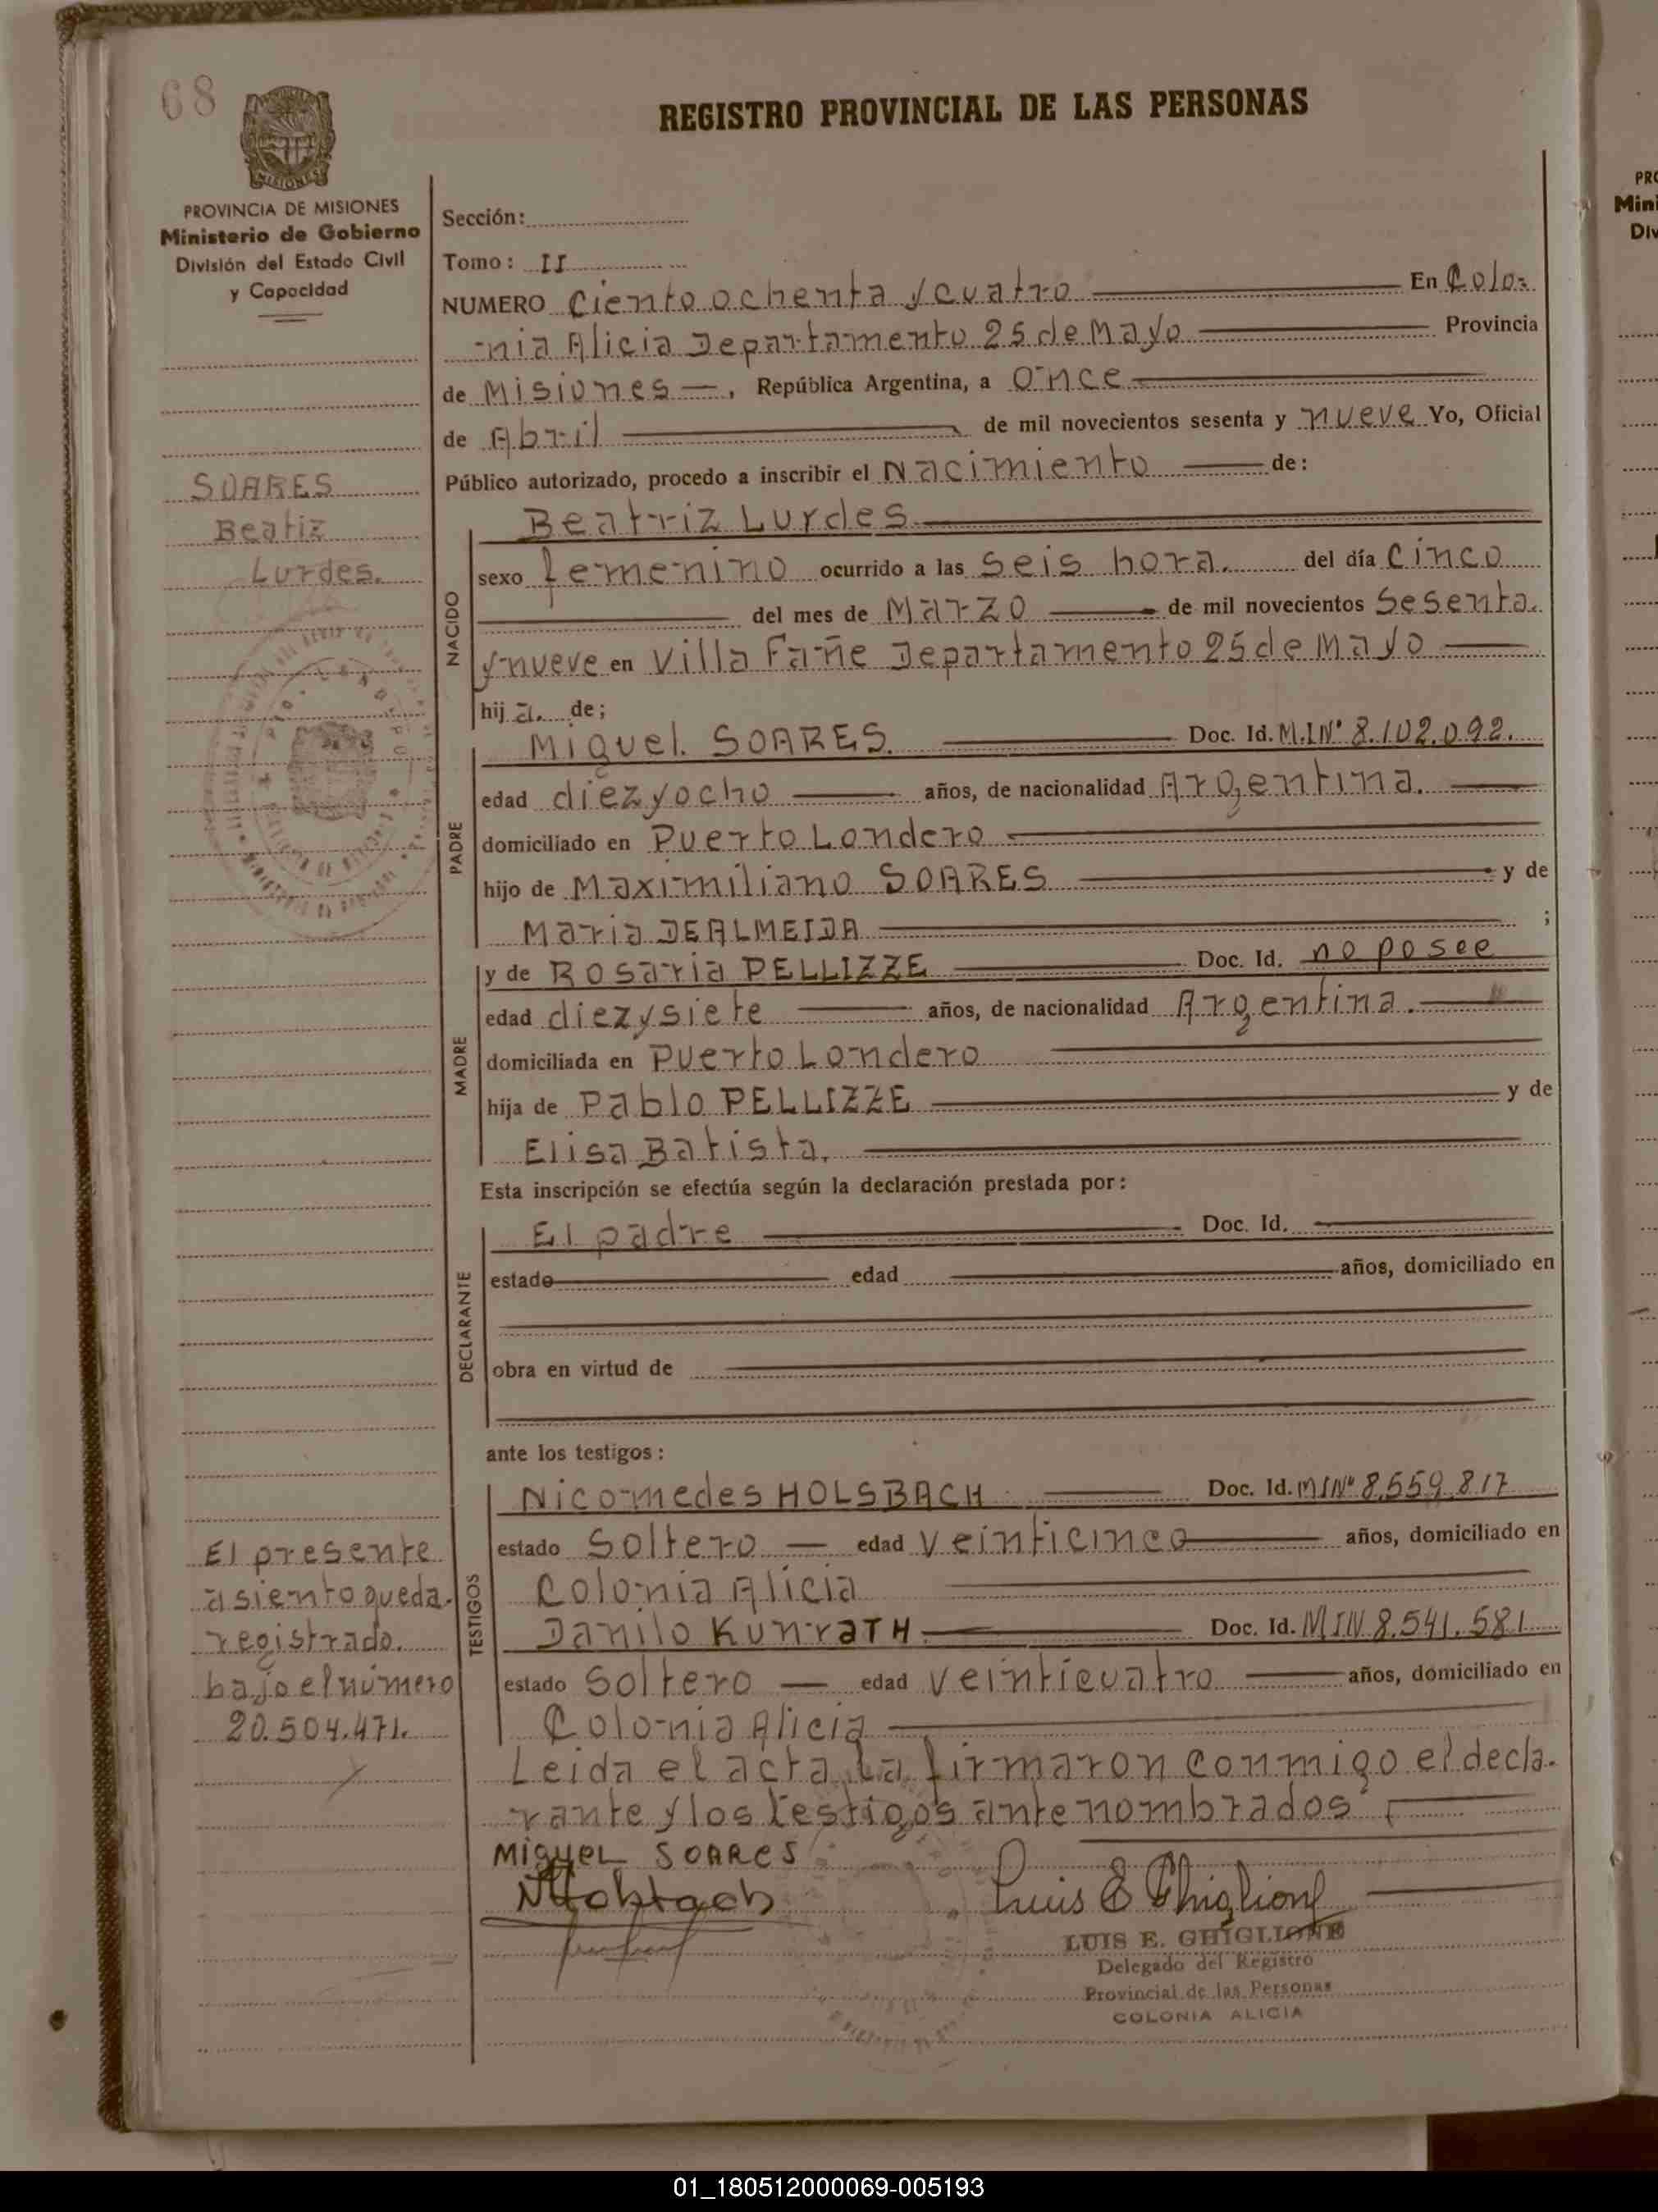 68
REGISTRO PROVINCIAL DE LAS PERSONAS
MISIONES
PROVINCIA DE MISIONES
Ministerio de Gobierno
División del Estado Civil
y Capacidad
Sección:
Tomo: II
NUMERO Ciento ochenta y cuatro En Colo-
-nia Alicia Departamento 25 de Mayo Provincia
de Misiones, República Argentina, a once
de Abril de mil novecientos sesenta y nueve Yo, Oficial
Público autorizado, procedo a inscribir el Nacimiento de:
SOARES
Beatiz
Lurdes.
NACIDO
Beatriz Lurdes
sexo femenino ocurrido a las seis hora. del día cinco
del mes de Marzo de mil novecientos sesenta.
y nueve en Villa Fañe Departamento 25 de Mayo
hija. de;
PADRE
Miguel. SOARES. Doc. Id. M.I Nº 8.102.092.
edad diez y ocho años, de nacionalidad Argentina.
domiciliado en Puerto Londero
hijo de Maximiliano SOARES y de
Maria DEALMEIDA ;
MADRE
y de Rosaria PELLIZZE Doc. Id. no posee
edad diez y siete años, de nacionalidad Argentina.
domiciliada en Puerto Londero
hija de Pablo PELLIZZE y de
Elisa Batista.
Esta inscripción se efectúa según la declaración prestada por:
DECLARANTE
El padre Doc. Id.
estado edad años, domiciliado en
obra en virtud de
ante los testigos:
TESTIGOS
Nicomedes HOLSBACH Doc. Id. MI Nº 8.559.817
estado Soltero edad veinticinco años, domiciliado en
Colonia Alicia
Danilo KunraTH Doc. Id. M.I.N. 8.541.581
estado Soltero edad veinticuatro años, domiciliado en
Colonia Alicia
El presente
asiento queda.
registrado.
bajo el número
20.504.471.
Leida el acta la firmaron conmigo el decla.
rante y los testigos antenombrados
Miguel SOARES
Luis E Ghiglione
LUIS E. GHIGLIONE
Delegado del Registro
Provincial de las Personas
COLONIA ALICIA
01_180512000069-005193